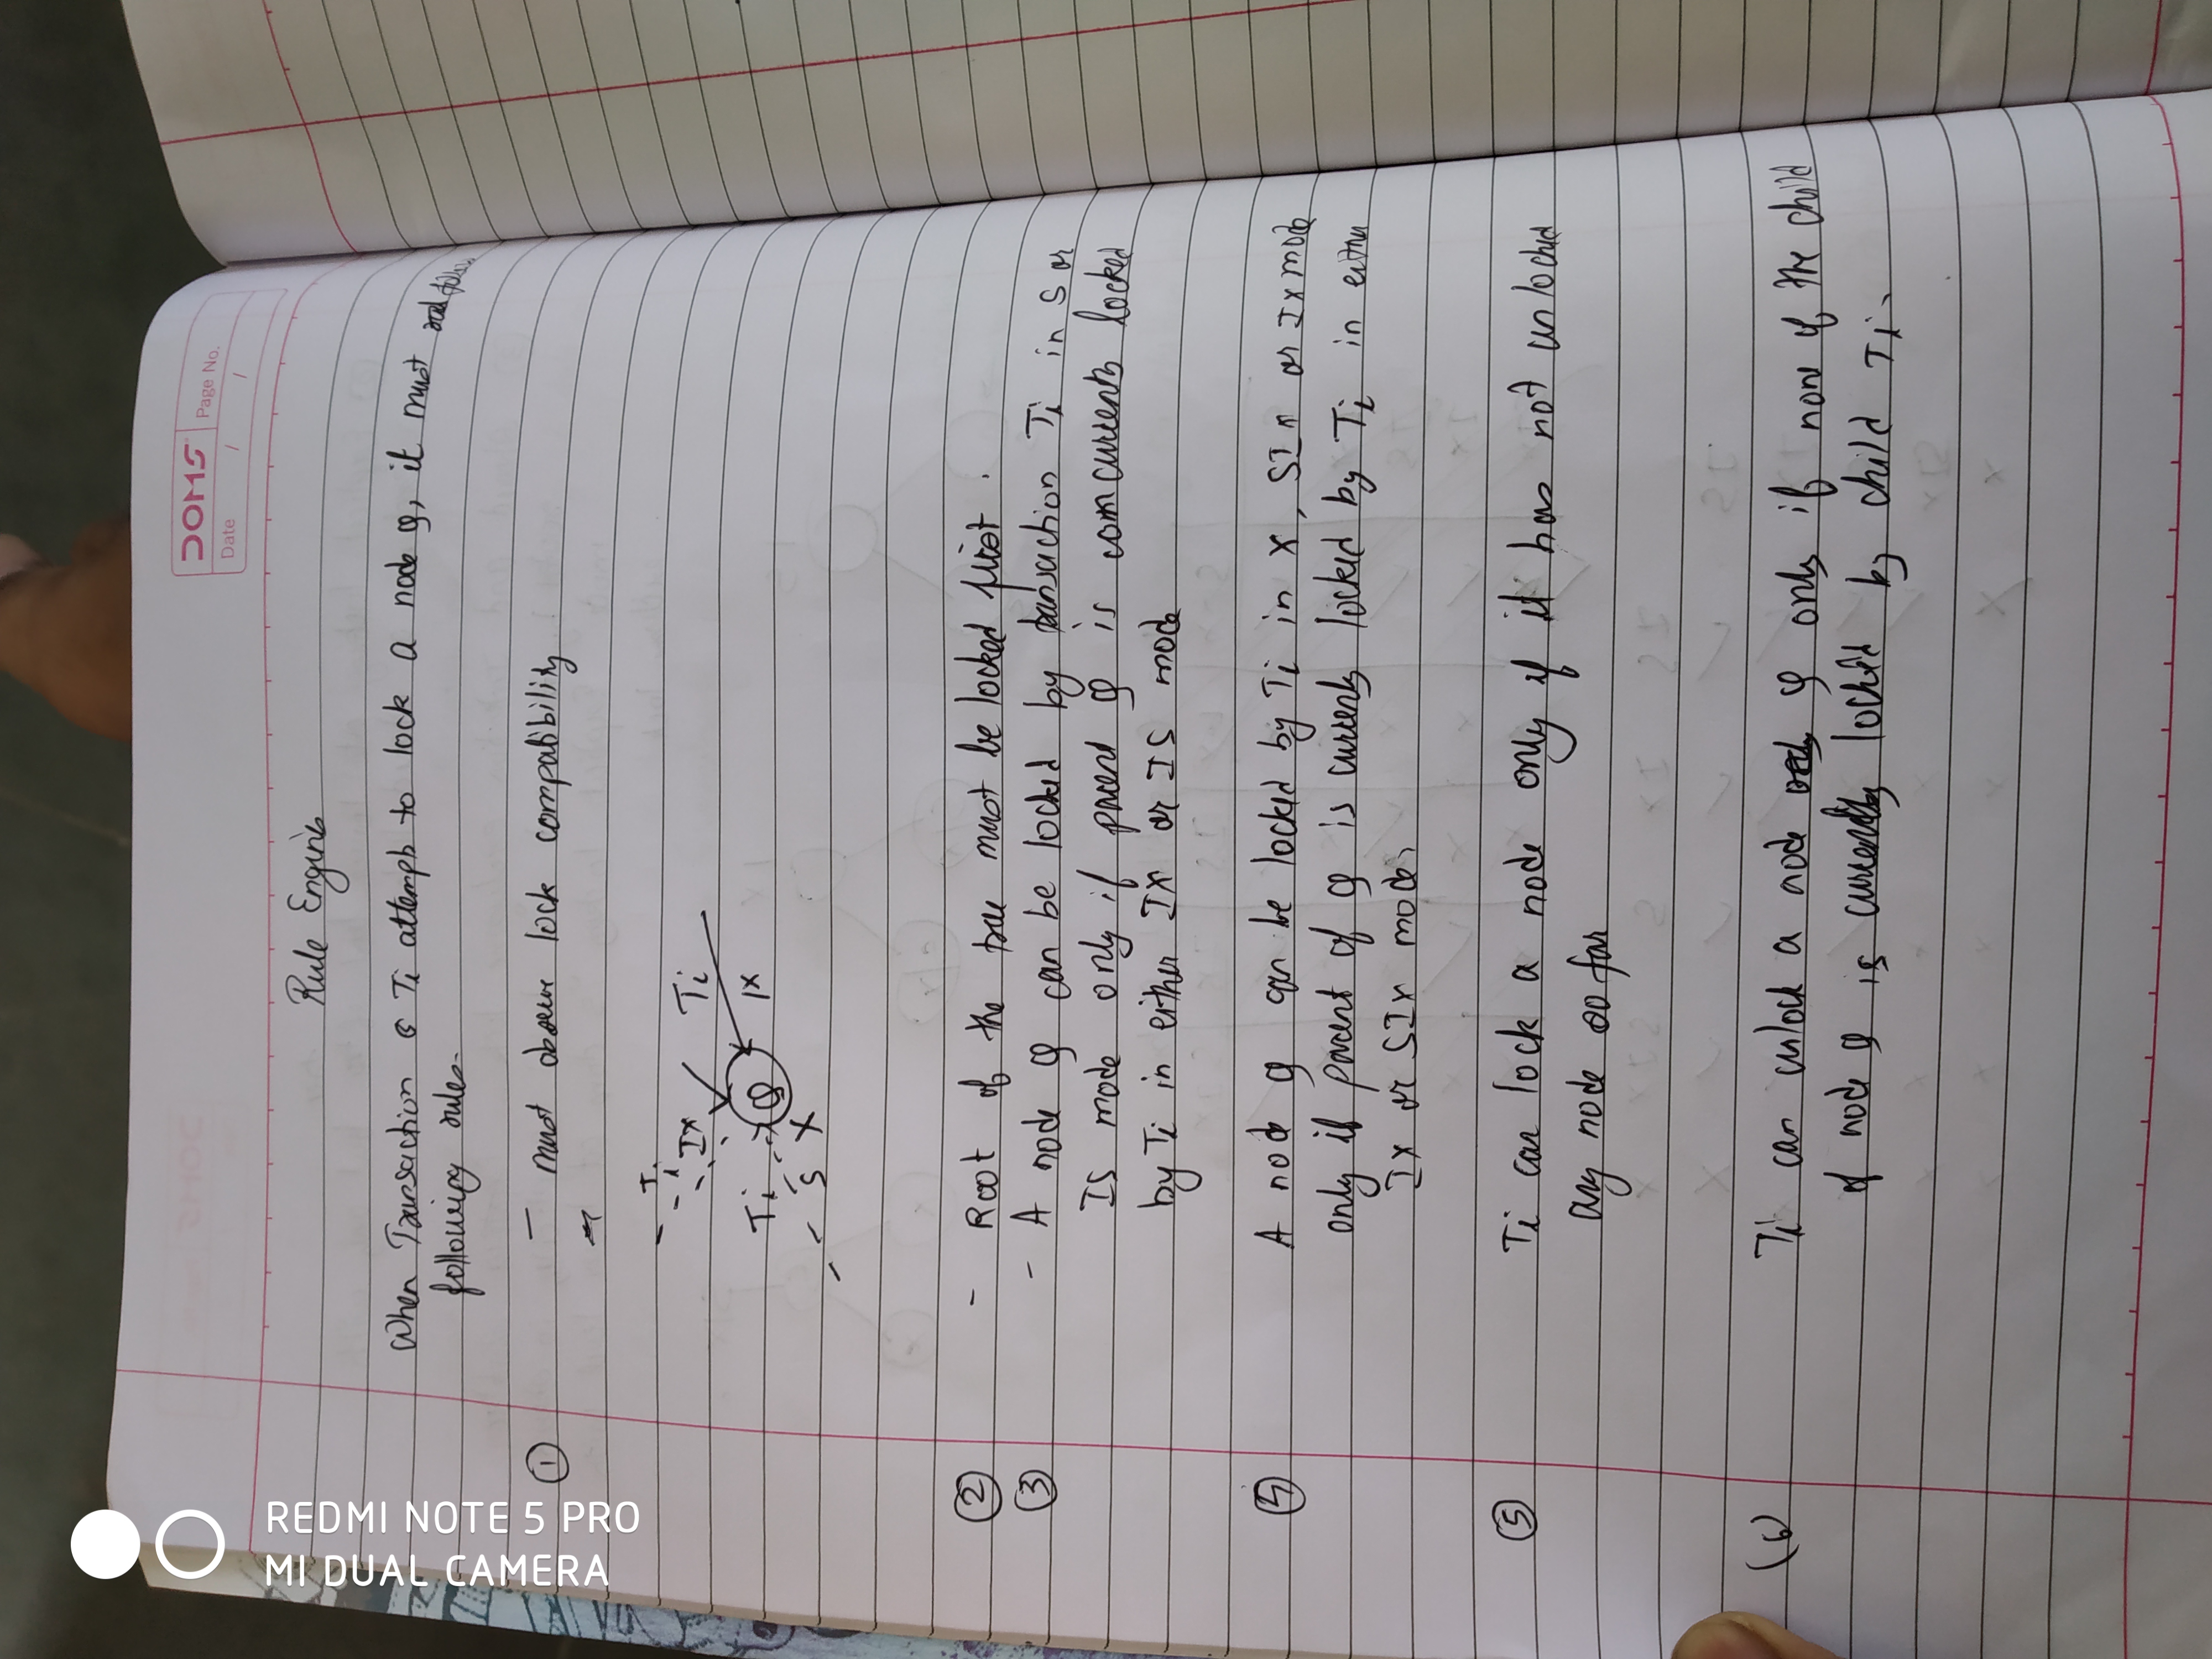 DOMS
Page No.
Date / /
Rule Engine
When Transaction Ti attempt to lock a node Q, it must
following rules.
① - must observe lock compability
Ti
Ix IX
Ti Q
S X
② - Root of the tree must be locked first.
③ - A node Q can be locked by transaction Ti in S or
IS mode only if parent Q is concurrently locked
by Ti in either IX or IS mode
④ A node Q can be locked by Ti in X, SIx or Ix mode
only if parent of Q is currently locked by Ti in either
Ix or SIx mode.
⑤ Ti can lock a node only if it has not unlocked
any node so far
(6) Ti can unlock a node Q only if none of the child
of node Q is currently locked by child Ti.
REDMI NOTE 5 PRO
MI DUAL CAMERA